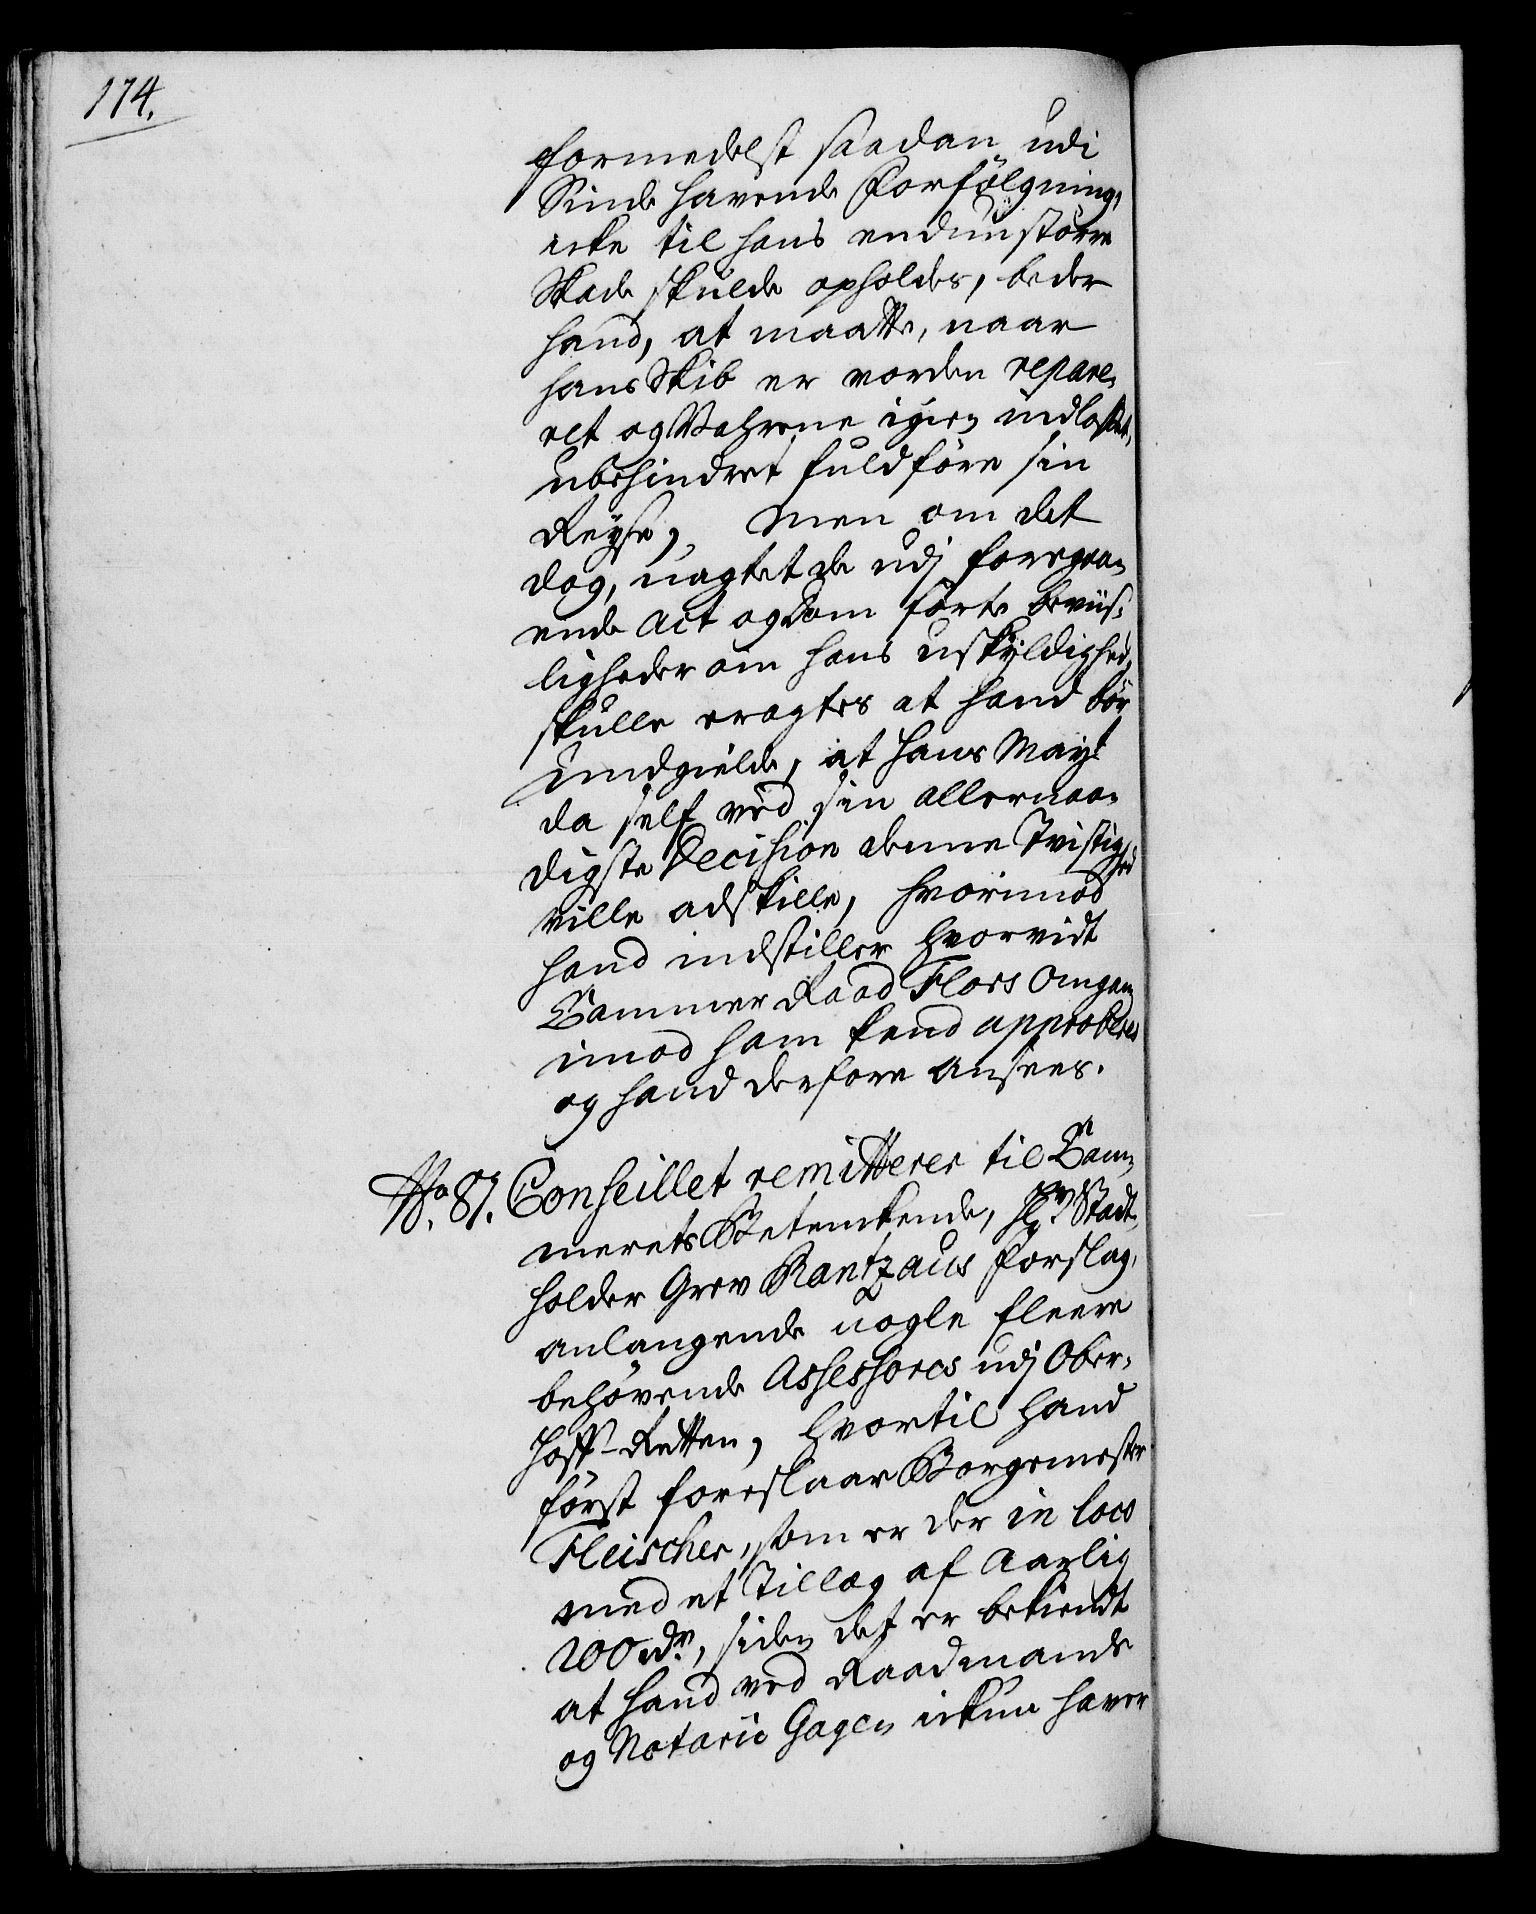 174.
formedelst saadan udi
Sinde havende Forfölgning,
icke til hans endnu större
Skade skulde opholdes, beder
hand, at maatte, naar
hans Skib er vorden repare-
ret og Vahrene igien indlastet,
ubehindret fuldföre sin
Reÿse, Men om det
dog, uagtet de udj foregaa-
ende Act og som förte beviis-
ligheder om hans uskÿldighed,
skulle eragtes at hand bör
undgielde, at Hans Mayt
da self ved sin allernaa-
digste Decision denne Tvistighed
ville adskille, hvorimod
hand indstiller hvorvidt
Cammer Raad Flors Omgang
imod ham kand approberes
og hand derfore ansees.
No. 87. Conseillet remitterer til Cam-
merets Betenkende, Hr Stadt-
holder Grev Rantzaus Forslag,
anlangende nogle fleere
behövende Assessores udj Ober-
Hoff-Retten, hvortil hand
först foreslaar Borgemester
Fleischer, som er der in loco
med et Tillæg af Aarlig
200 rdr, siden det er bekiendt
at hand ved Raadmands
og Notarie Gagen ickun haver